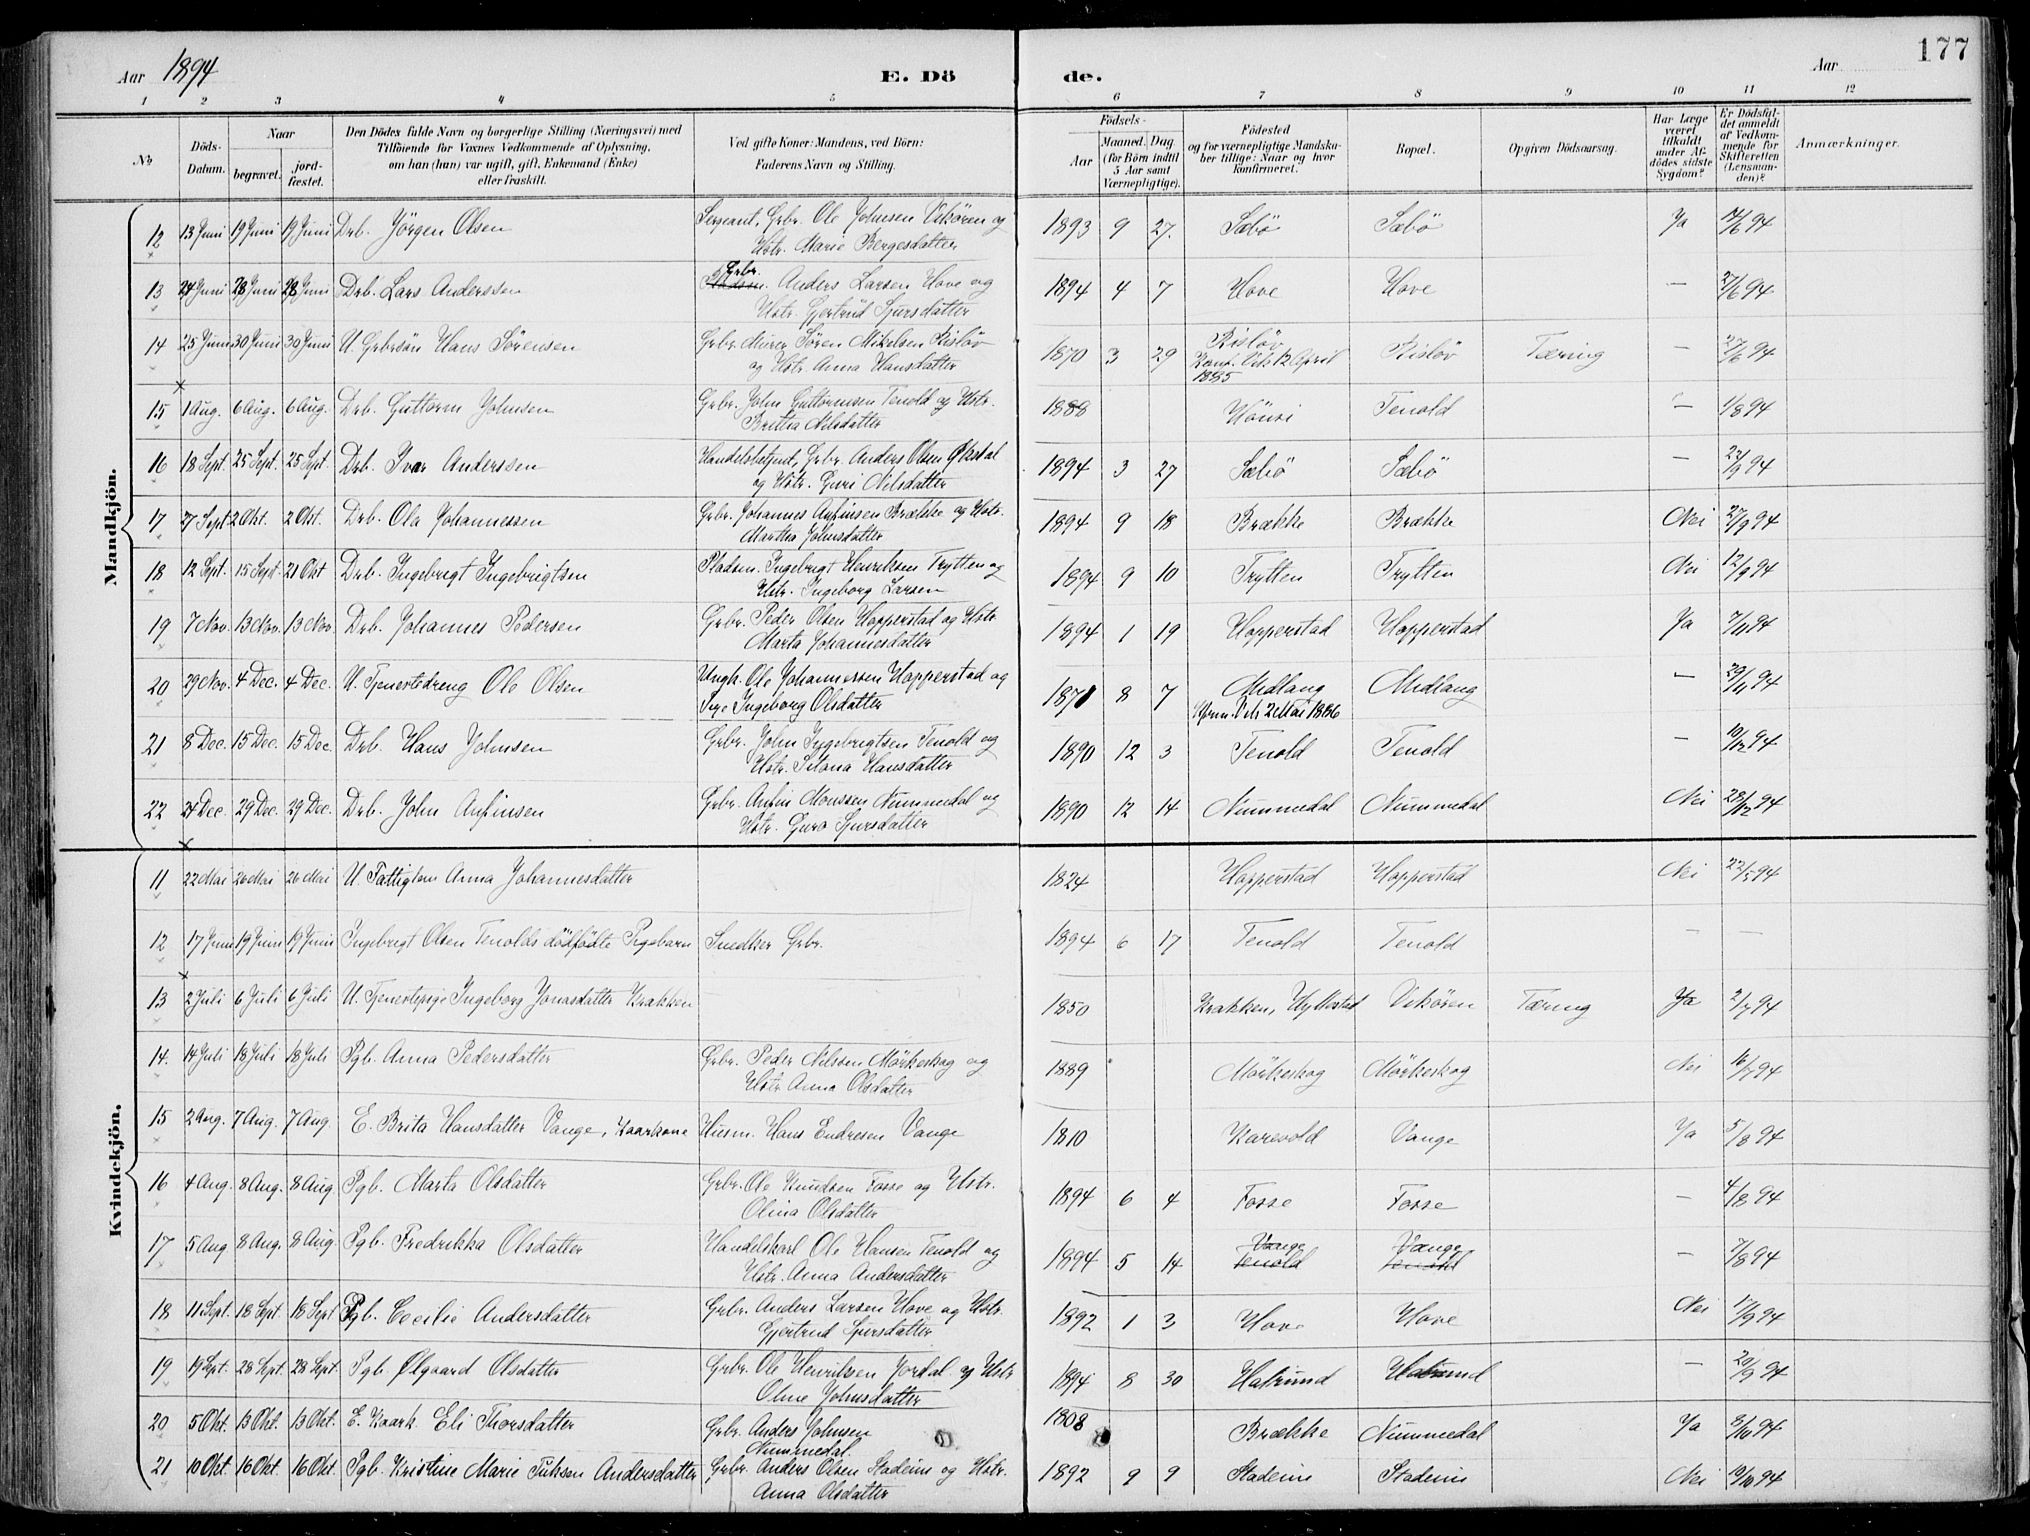 177
Aar 1894
E. Dö de.
Aar
1 2 3 4 5 6 7 8 9 10 11 12
No
Döds-Datum.
Naar
begravet.
jord-fæstet.
Den Dödes fulde Navn og borgerlige Stilling (Næringsvei) med
Tilföiende for Voxnes Vedkommende af Oplysning,
om han (hun) var ugift, gift, Enkemand (Enke)
eller fraskilt.
Ved gifte Koner: Mandens, ved Börn:
Faderens Navn og Stilling.
Födsels-
Aar
Maaned. Dag
(for Börn indtil
5 Aar samt
Værnepligtige).
Födested
og for værnepligtige Mandska-
ber tillige: Naar og hvor
konfirmeret.
Bopæl.
Opgiven Dödsaarsag.
Har Læge
været
tilkaldt
under Af-
dödes sidste
Sygdom?
Er Dödsfal-
det anmeldt
af Vedkom-
mende for
Skifteretten
(Lensman-
den)?
Anmærkninger.
Mandkjön.
12 13 Juni 19 Juni 19 Juni Drb. Jörgen Olsen Sergeant, Grbr. Ole Johnsen Vikören og 1893 9 27. Sæbö Sæbö Ja 14/6 94
Hstr. Marie Bergesdatter
13 24 Juni 28 Juni 28 Juni Drb. Lars Anderssen Grbr. Anders Larsen Hove og 1894 4 7 Hove Hove — 27/6 94
Hstr. Gjertrud Sjursdatter
14 25 Juni 30 Juni 30 Juni U. Grbrsön Hans Sörensen Grbr. Murer Sören Mikelsen Risløv 1870 3 29 Risløv Risløv Tæring — 27/6 94
og Hstr. Anna Hansdatter Konf. Vik 12 April
1885
15 1 Aug. 6 Aug. 6 Aug. Drb. Guttorm Johnsen Grbr. John Guttormsen Tenold og Hstr. 1888 Hönsi Tenold — 1/8 94
Brittha Nilsdatter
16 18 Sept. 25 Sept. 25 Sept. Drb. Ivar Anderssen Handelsbetjent, Grbr. Anders Olsen Økstal 1894 3 27 Sæbö Sæbö — 22/9 94
og Hstr. Guri Nilsdatter
17 27 Sept. 2 Okt. 2 Okt. Drb. Ola Johannessen Grbr. Johannes Anfinsen Brække og Hstr. 1894 9 18 Brække Brække Nei 27/9 94
Martha Johnsdatter
18 12 Sept. 15 Sept. 21 Okt Drb. Ingebrigt Ingebrigtsen Pladsm. Ingebrigt Henriksen Trytten og 1894 9 10 Trytten Trytten Nei 12/9 94
Hstr. Ingeborg Larsen
19 7 Nov. 13 Nov. 13 Nov Drb. Johannes Pedersen Grbr. Peder Olsen Hopperstad og Hstr. 1894 1 19 Hopperstad Hopperstad Ja 7/11 94
Marta Johannesdatter
20 29 Nov. 4 Dec. 4 Dec. U. Tjenestedreng Ole Olsen Ungk. Ole Johannessen Hopperstad og 1871 8 7 Midlang Midlang — 29/11 94
Pige Ingeborg Olsdatter Konf. Vik 2 Mai 1886
21 8 Dec. 15 Dec. 15 Dec. Drb. Hans Johnsen Grbr. John Ingebrigtsen Tenold og 1890 12 3 Tenold Tenold — 10/12 94
Hstr. Silona Hansdatter
22 24 Dec. 29 Dec. 29 Dec. Drb. John Anfinsen Grbr. Anfin Monssen Nummedal og 1890 12 14 Nummedal Nummedal Nei 28/12 94
Hstr. Guro Sjursdatter
Kvindekjön.
11 22 Mai 26 Mai 26 Mai U. Fattiglem Anna Johannesdatter 1824 Hopperstad Hopperstad Nei 22/5 94
12 17 Juni 19 Juni 19 Juni Ingebrigt Olsen Tenolds dödfödte Pigebarn Snedker Grbr. 1894 6 17 Tenold Tenold — —
13 2 Juli 6 Juli 6 Juli U. Tjenestepige Ingeborg Jonasdatter Krakken 1850 Krakken, Hyllestad Vikören Tæring Ja 2/7 94
14. 14 Juli 18 Juli 18 Juli Pgb. Anna Pedersdatter Grbr. Peder Nilsen Mörkeskog og 1889 Mörkeskog Mörkeskog Nei 16/7 94
Hstr Anna Olsdatter
15 2 Aug. 7 Aug. 7 Aug. E. Brita Hansdatter Vange, Kaarkone Husm. Hans Endresen Vange 1810 Karevold Vange Ja 5/8 94
16 4 Aug. 8 Aug. 8 Aug. Pgb. Marta Olsdatter Grbr. Ole Knudsen Fosse og Hstr. 1894 6 4 Fosse Fosse — 4/8 94
Olina Olsdatter
17 5 Aug 8 Aug. 8 Aug. Pgb. Fredrikka Olsdatter Handelskarl Ole Hansen Tenold og 1894 5 14 Vange Tenold Vange Tenold — 7/8 94
Hstr. Anna Andersdatter
18 11 Sept. 18 Sept. 18 Sept Pgb. Cecilie Andersdatter Grbr. Anders Larsen Hove og Hstr. 1892 1 3 Hove Hove Nei 17/9 94
Gjertrud Sjursdatter
19 19 Sept. 28 Sept. 28 Sept. Pgb. Ølgaard Olsdatter Grbr. Ole Henriksen Jordal og Hstr 1894 8 30 Halrund Halrund — 20/9 94
Oline Johnsdatter
20 5 Okt. 13 Okt. 13 Okt. E. Kaark. Eli Thorsdatter Grbr. Anders Johnsen 1808 Brække Nummedal Ja 8/10 94
Nummedal.
21 10 Okt. 16 Okt. 16 Okt. Pgb. Kristine Marie Tuksen Andersdatter Grbr. Anders Olsen Stadeim og Hstr. 1892 9 9 Stadeim Stadeim Nei 13/10 94
Anna Olsdatter